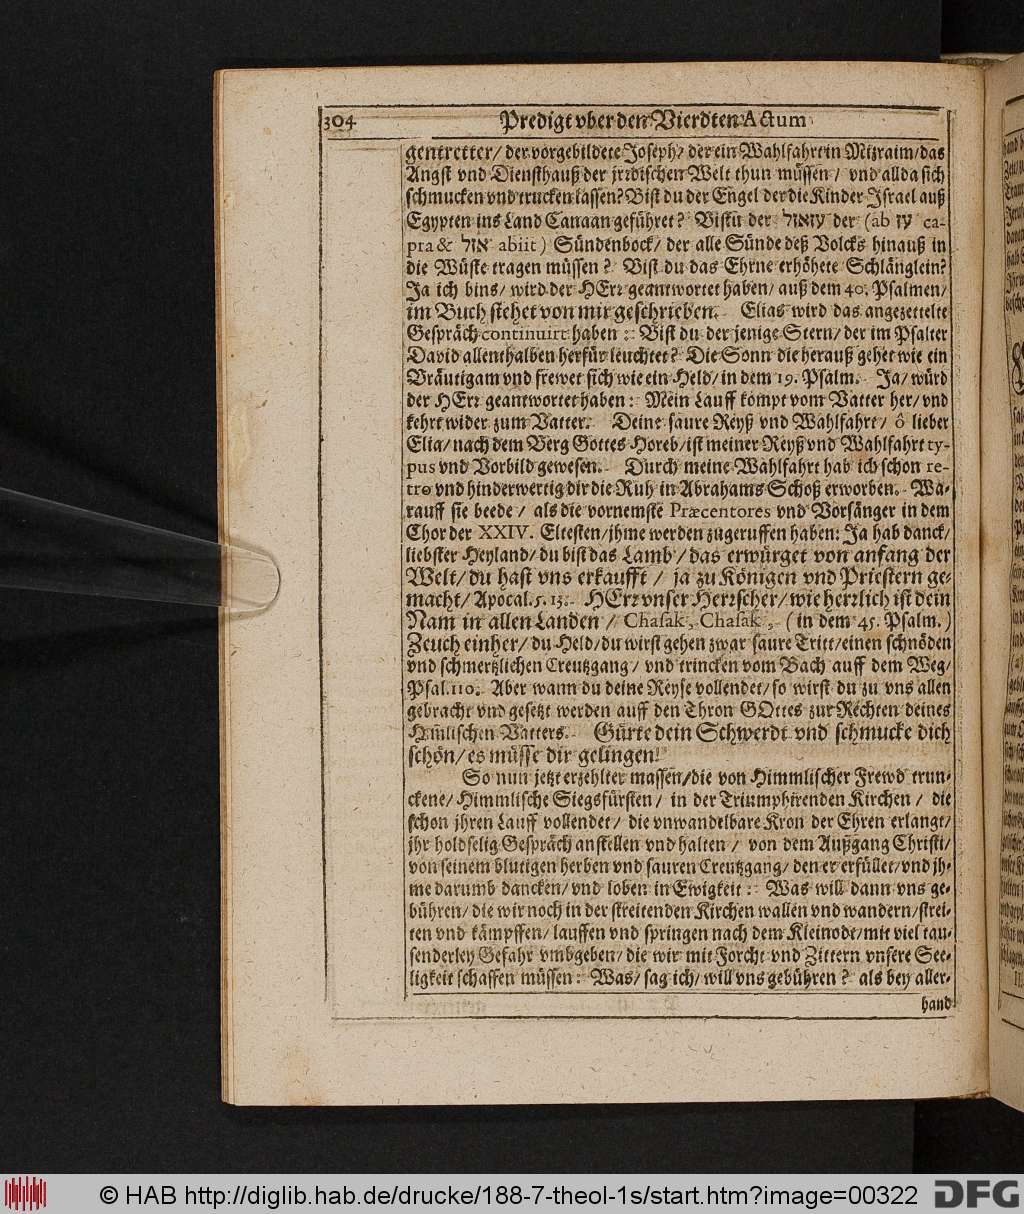 304 Predigt vber den Vierdten Actum
gentretter/ der vorgebildete Joseph/ der ein Wahlfahrt in Mizraim/ das
Angst vnd Diensthauß der jrrdischen Welt thun müssen/ vnd allda sich
schmucken vnd trucken lassen? Bist du der Engel der die Kinder Israel auß
Egypten ins Land Canaan geführet? Bistu der עזאזל der (ab עז ca-
pra & אזל abiit) Sündenbock/ der alle Sünde deß Volcks hinauß in
die Wüste tragen müssen? Bist du das Ehrne erhöhete Schlänglein?
Ja ich bins/ wird der HErr geantwortet haben/ auß dem 40. Psalmen/
im Buch stehet von mir geschrieben. Elias wird das angezettelte
Gespräch continuirt haben: Bist du der jenige Stern/ der im Psalter
David allenthalben herfür leuchtet? Die Sonn die herauß gehet wie ein
Bräutigam vnd frewet sich wie ein Held/ in dem 19. Psalm. Ja/ würd
der HErr geantwortet haben: Mein Lauff kompt vom Vatter her/ vnd
kehrt wider zum Vatter. Deine saure Reyß vnd Wahlfahrt/ ô lieber
Elia/ nach dem Berg Gottes Horeb/ ist meiner Reyß vnd Wahlfahrt ty-
pus vnd Vorbild gewesen. Durch meine Wahlfahrt hab ich schon re-
tro vnd hinderwertig dir die Ruh in Abrahams Schoß erworben. Wa-
rauff sie beede/ als die vornemste Præcentores vnd Vorsänger in dem
Chor der XXIV. Eltesten/ jhme werden zugeruffen haben: Ja hab danck/
liebster Heyland/ du bist das Lamb/ das erwürget von anfang der
Welt/ du hast vns erkaufft/ ja zu Königen vnd Priestern ge-
macht/ Apocal. 5. 13. HErr vnser Herrscher/ wie herrlich ist dein
Nam in allen Landen/ Chasak, Chasak, (in dem 45. Psalm.)
Zeuch einher/ du Held/ du wirst gehen zwar saure Tritt/ einen schnöden
vnd schmertzlichen Creutzgang/ vnd trincken vom Bach auff dem Weg/
Psal. 110. Aber wann du deine Reyse vollendet/ so wirst du zu vns allen
gebracht vnd gesetzt werden auff den Thron GOttes zur Rechten deines
Himlischen Vatters. Gürte dein Schwerdt vnd schmucke dich
schön/ es müsse dir gelingen!
So nun jetzt erzehlter massen/ die von Himmlischer Frewd trun-
ckene/ Himmlische Siegsfürsten/ in der Triumphirenden Kirchen/ die
schon jhren Lauff vollendet/ die vnwandelbare Kron der Ehren erlangt/
jhr holdselig Gespräch anstellen vnd halten/ von dem Außgang Christi/
von seinem blutigen herben vnd sauren Creutzgang/ den er erfüllet/ vnd jh-
me darumb dancken/ vnd loben in Ewigkeit: Was will dann vns ge-
bühren/ die wir noch in der streitenden Kirchen wallen vnd wandern/ strei-
ten vnd kämpffen/ lauffen vnd springen nach dem Kleinodt/ mit viel tau-
senderley Gefahr vmbgeben/ die wir mit Forcht vnd Zittern vnsere See-
ligkeit schaffen müssen: Was/ sag ich/ will vns gebühren? als bey aller-
hand
© HAB http://diglib.hab.de/drucke/188-7-theol-1s/start.htm?image=00322 DFG